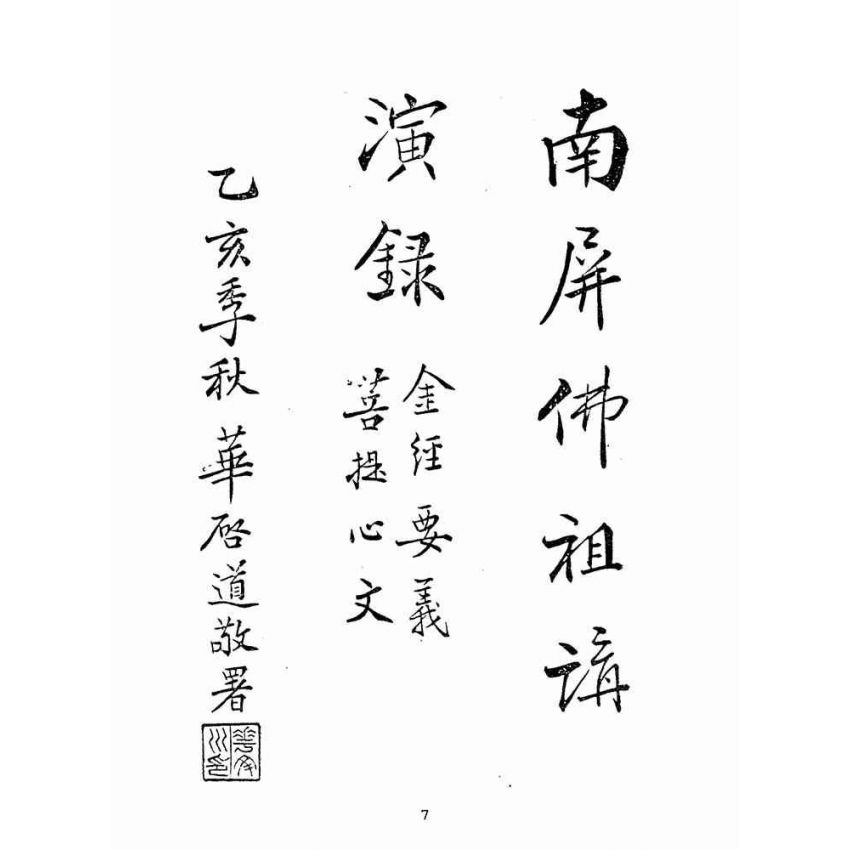 南屏佛祖講
演録
金經要義
菩提心文
乙亥季秋 華啓道敬署
7